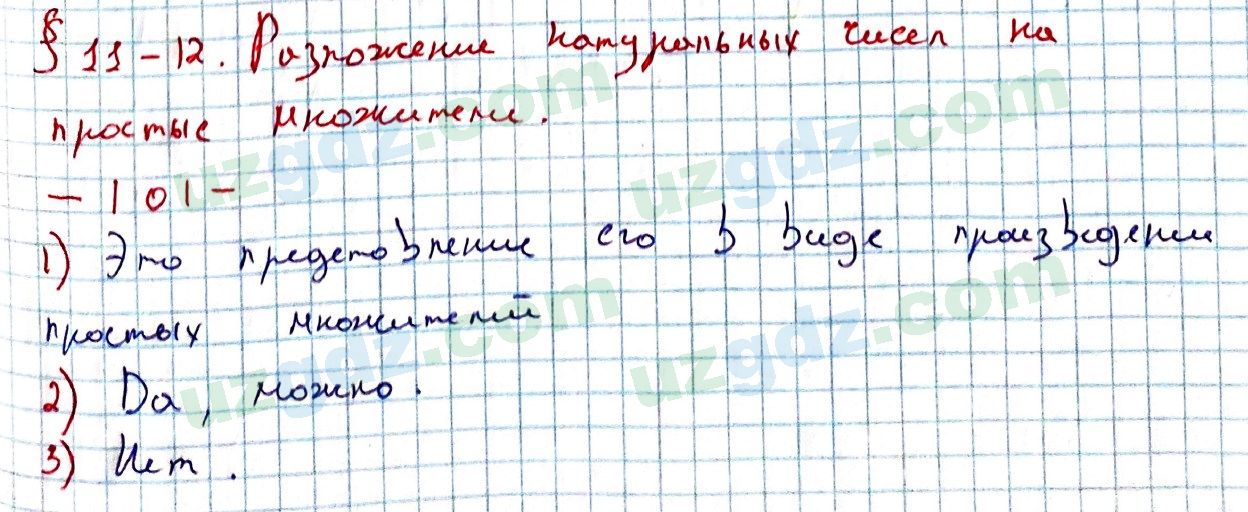 § 11-12. Разложение натуральных чисел на
простые множители.
- 101 -
1) Это представление его в виде произведении
простых множителей
2) Да, можно.
3) Нет.
uzgdz.com
uzgdz.com
uzgdz.com
uzgdz.com